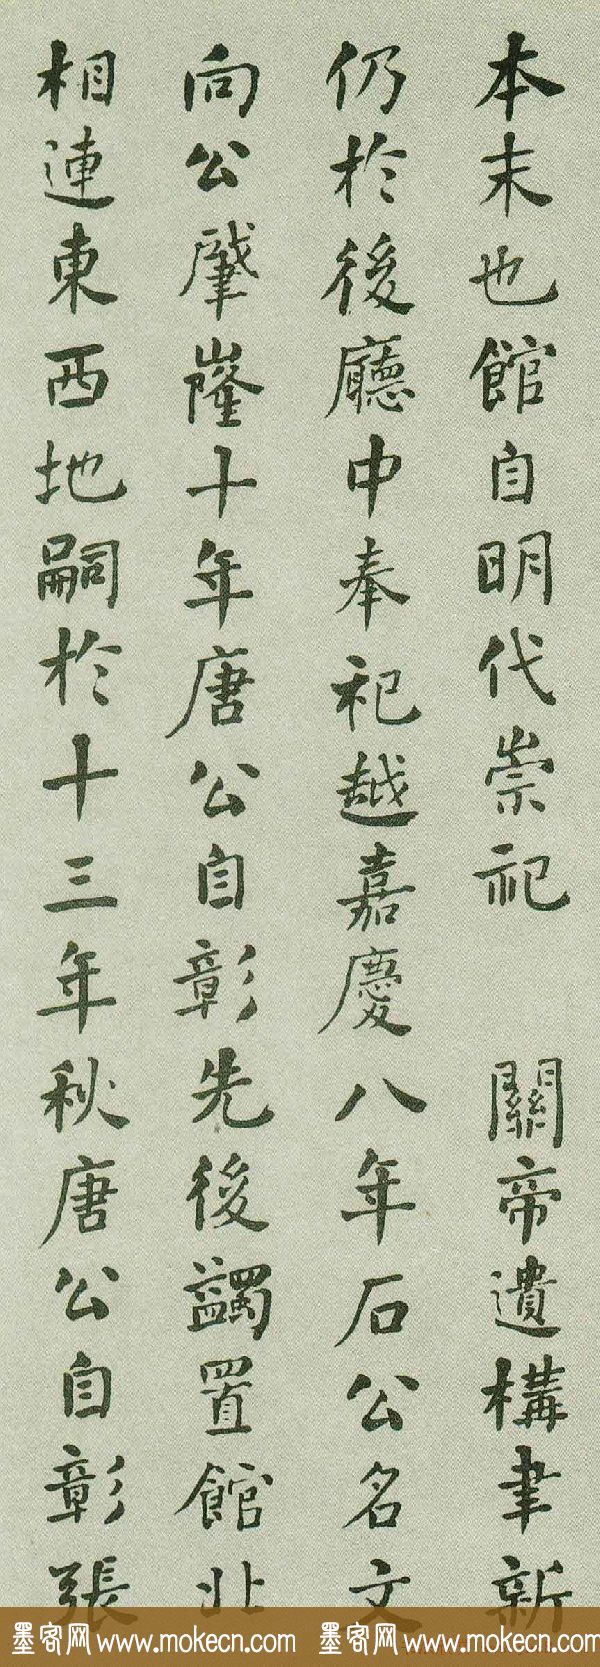 本末也館自明代崇祀 關帝遺構聿新
仍於後廳中奉祀越嘉慶八年石公名文
向公肈嶐十年唐公自彰先後蠲置館北
相連東西地嗣於十三年秋唐公自彰張
墨客网 www.mokecn.com 墨客网 www.mokecn.com